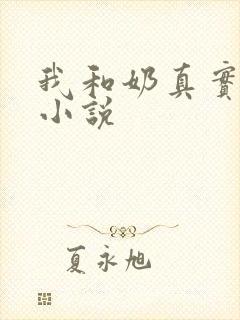 我和奶真實
小說
夏永旭